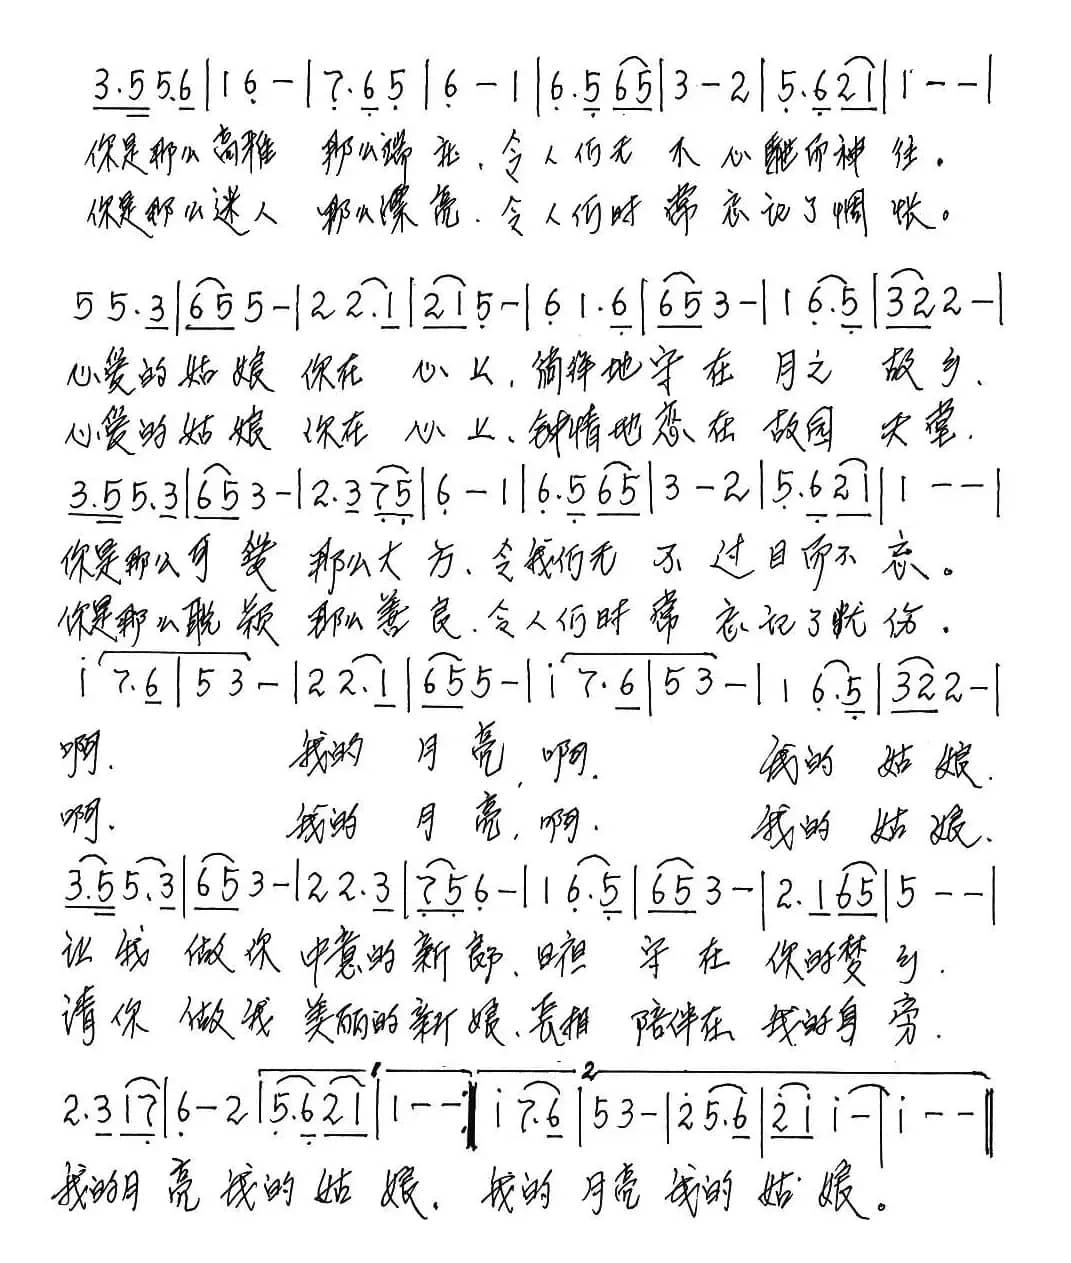 3.5 5.6 | 1 6 - | 7.6 5 | 6 - 1 | 6.5 6 5 | 3 - 2 | 5.6 2 1 | 1 - - |
你是那么高雅 那么端庄、令人们无不心驰而神往。
你是那么迷人 那么漂亮、令人们时常忘记了惆怅。
5 5.3 | 6 5 5 - | 2 2.1 | 2 1 5 - | 6 1.6 | 6 5 3 - | 1 6.5 | 3 2 2 - |
心爱的姑娘 你在心上、徜徉地守在月之故乡、
心爱的姑娘 你在心上、钟情地恋在故园天堂.
3.5 5.3 | 6 5 3 - | 2.3 7 5 | 6 - 1 | 6.5 6 5 | 3 - 2 | 5.6 2 1 | 1 - - |
你是那么可爱 那么大方、令我们无不过目而不忘。
你是那么脱颖 那么善良、令人们时常忘记了忧伤.
i 7.6 | 5 3 - | 2 2.1 | 6 5 5 - | i 7.6 | 5 3 - | 1 6.5 | 3 2 2 - |
啊. 我的月亮, 啊. 我的姑娘.
啊. 我的月亮, 啊. 我的姑娘.
3.5 5.3 | 6 5 3 - | 2 2.3 | 7 5 6 - | 1 6.5 | 6 5 3 - | 2.1 6 5 | 5 - - |
让我做你中意的新郎、日夜守在你的梦乡.
请你做我美丽的新娘、长相陪伴在我的身旁.
1 2
2.3 1 7 | 6 - 2 | 5.6 2 1 | 1 - - :| i 7.6 | 5 3 - | 2 5.6 | 2 i i - | i - - ||
我的月亮我的姑娘. 我的月亮我的姑娘。